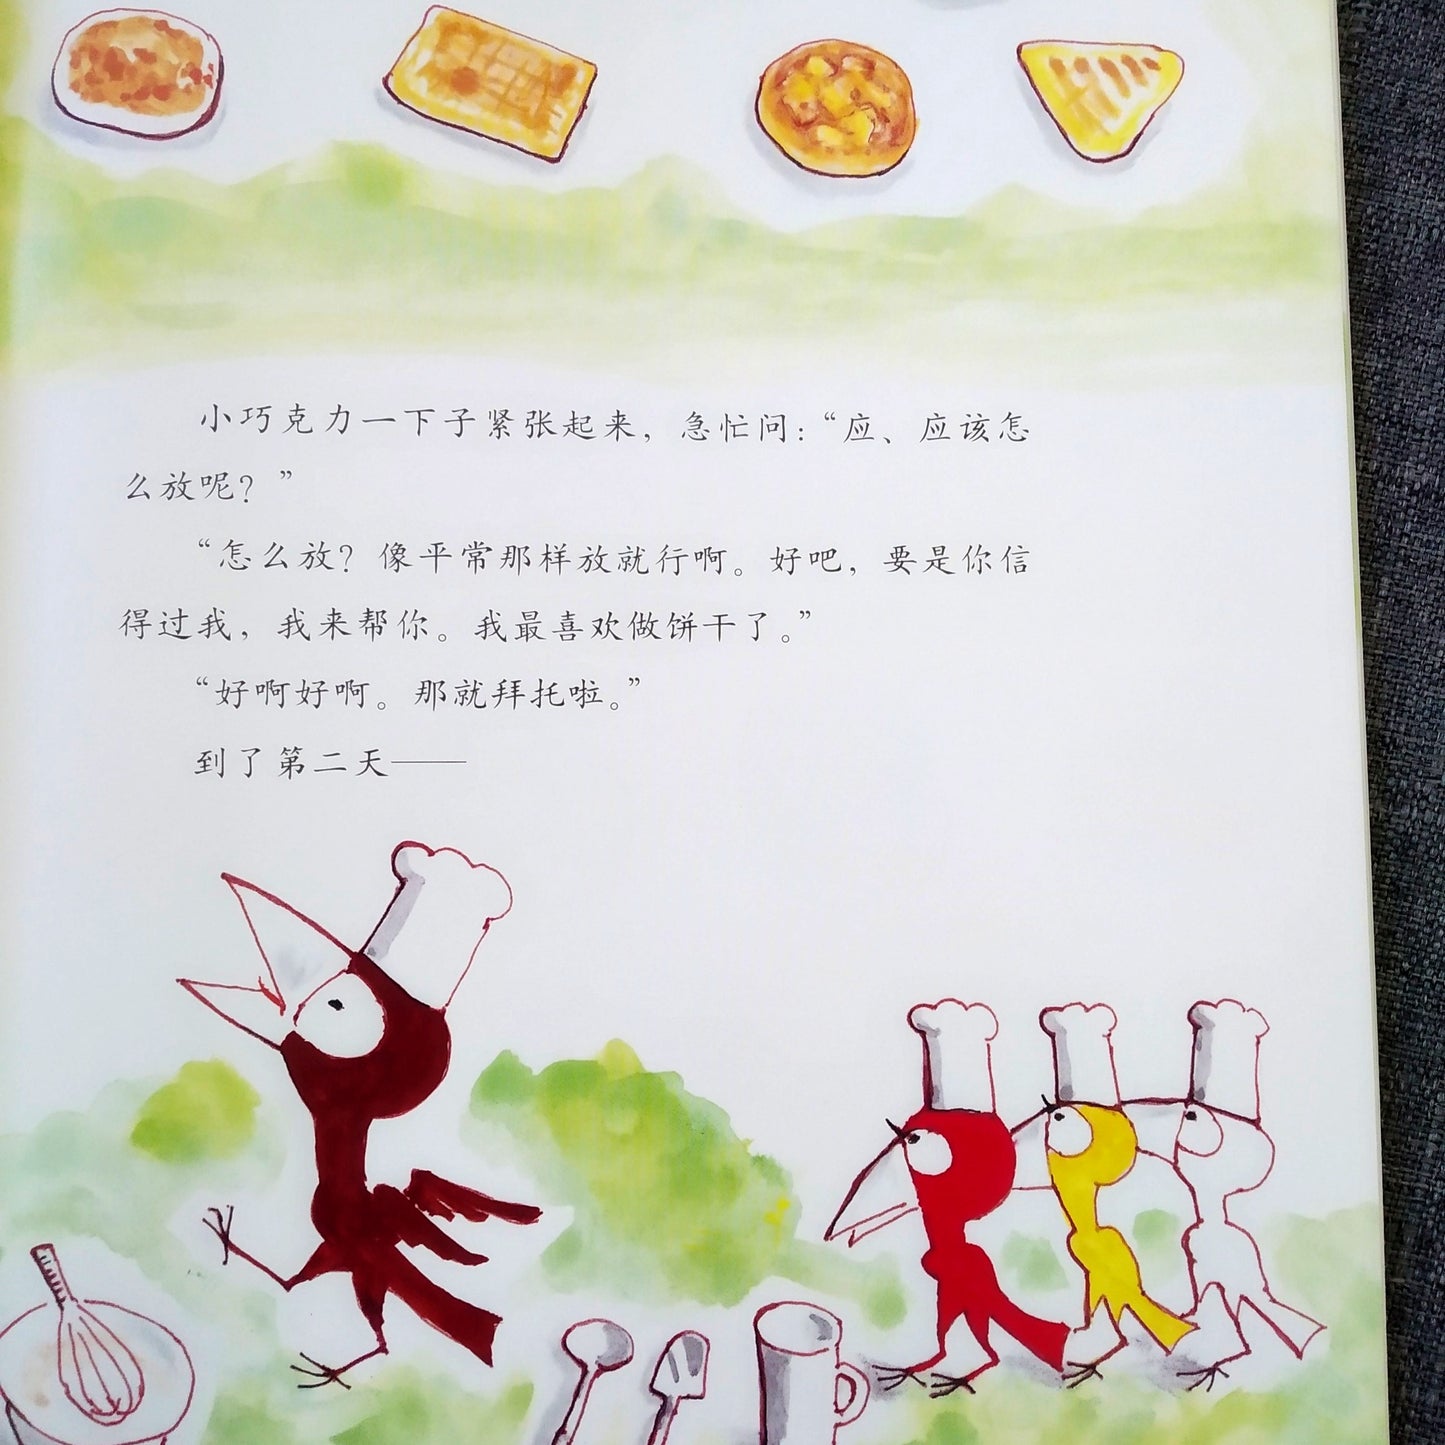 小巧克力一下子紧张起来，急忙问：“应、应该怎
么放呢？”
“怎么放？像平常那样放就行啊。好吧，要是你信
得过我，我来帮你。我最喜欢做饼干了。”
“好啊好啊。那就拜托啦。”
到了第二天——